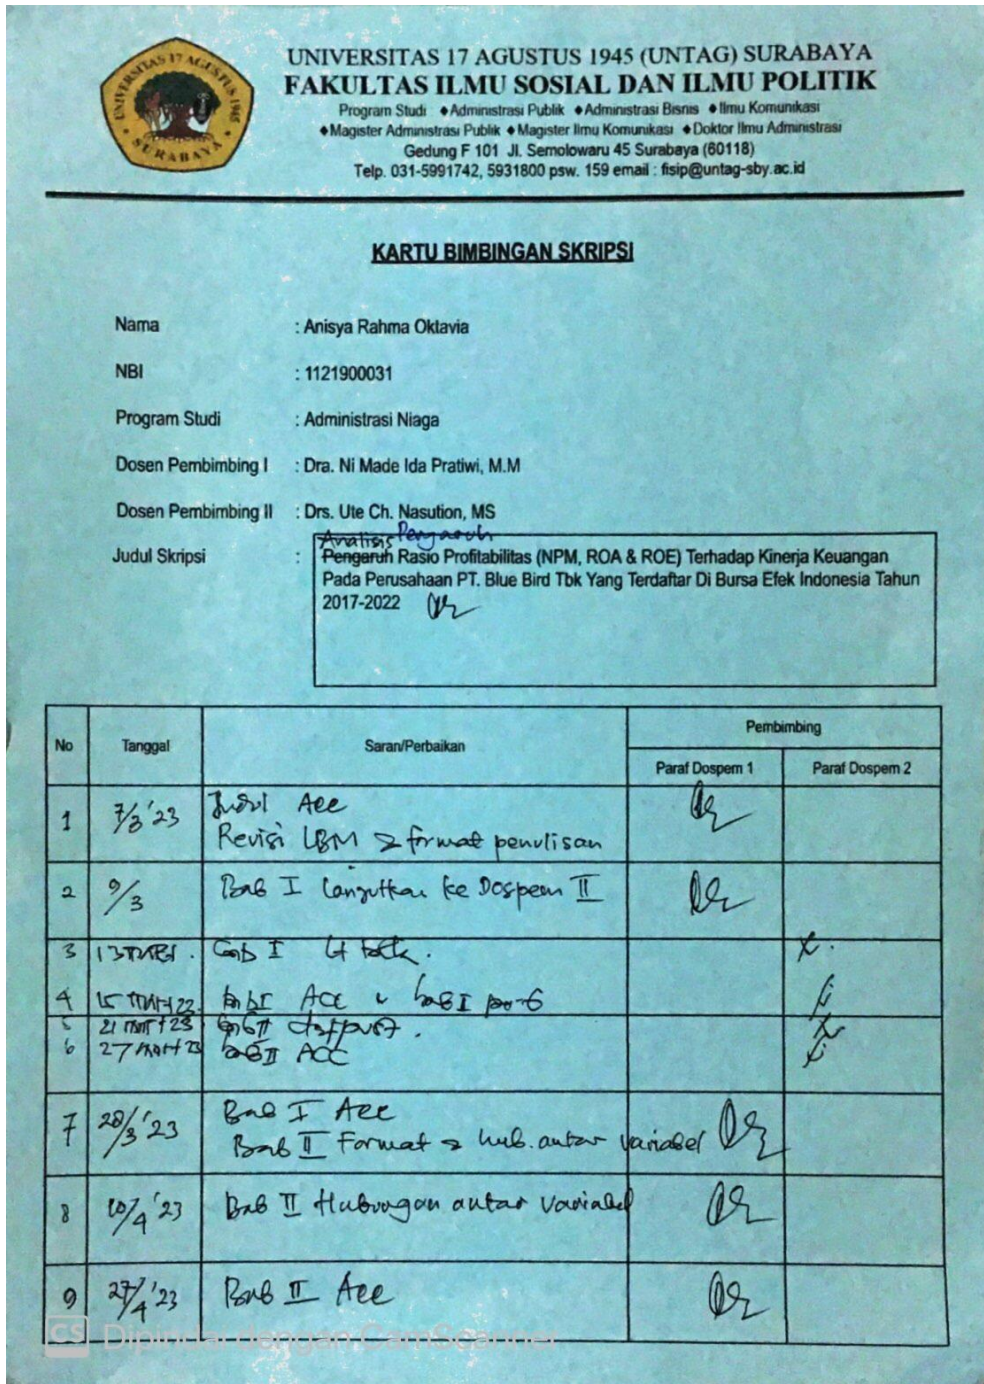 UNIVERSITAS 17 AGUSTUS 1945
SURABAYA
UNIVERSITAS 17 AGUSTUS 1945 (UNTAG) SURABAYA
FAKULTAS ILMU SOSIAL DAN ILMU POLITIK
Program Studi ♦Administrasi Publik ♦Administrasi Bisnis ♦Ilmu Komunikasi
♦Magister Administrasi Publik ♦Magister Ilmu Komunikasi ♦Doktor Ilmu Administrasi
Gedung F 101 Jl. Semolowaru 45 Surabaya (60118)
Telp. 031-5991742, 5931800 psw. 159 email : fisip@untag-sby.ac.id
KARTU BIMBINGAN SKRIPSI
Nama : Anisya Rahma Oktavia
NBI : 1121900031
Program Studi : Administrasi Niaga
Dosen Pembimbing I : Dra. Ni Made Ida Pratiwi, M.M
Dosen Pembimbing II : Drs. Ute Ch. Nasution, MS
Analisis Pengaruh
Judul Skripsi : Pengaruh Rasio Profitabilitas (NPM, ROA & ROE) Terhadap Kinerja Keuangan
Pada Perusahaan PT. Blue Bird Tbk Yang Terdaftar Di Bursa Efek Indonesia Tahun
2017-2022
No Tanggal Saran/Perbaikan Pembimbing
Paraf Dospem 1 Paraf Dospem 2
1 7/3 '23 Judul Acc
Revisi LBM & format penulisan
2 9/3 Bab I Lanjutkan ke Dospem II
3 13 Bab I
4 15 Bab I ACC Bab I
5 21 Mart 23 Bab II
6 27 Mart 23 Bab II ACC
7 28/3 '23 Bab I Acc
Bab II Format & hub. antar variabel
8 10/4 '23 Bab II Hubungan antar Variabel
9 27/4 '23 Bab II Acc
CS Dipindai dengan CamScanner